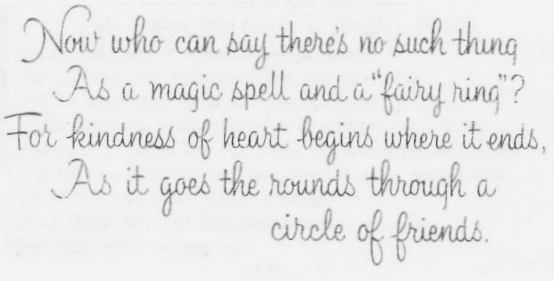 Now who can say there's no such thing
As a magic spell and a "fairy ring"?
For kindness of heart begins where it ends,
As it goes the rounds through a
circle of friends.